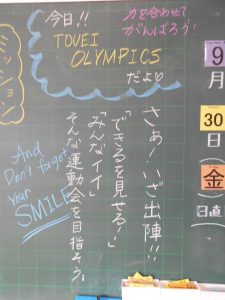 ミッション
今日!!
TOVEI
OLYMPICS
だよ♡
力を合わせて
がんばろう!
さぁ!いざ出陣!!
「できるを見せる!」
「みんなイイ」
そんな運動会を目指そう。
And
Don't forget
your
SMILE
9
月
30
日
(金)
日直